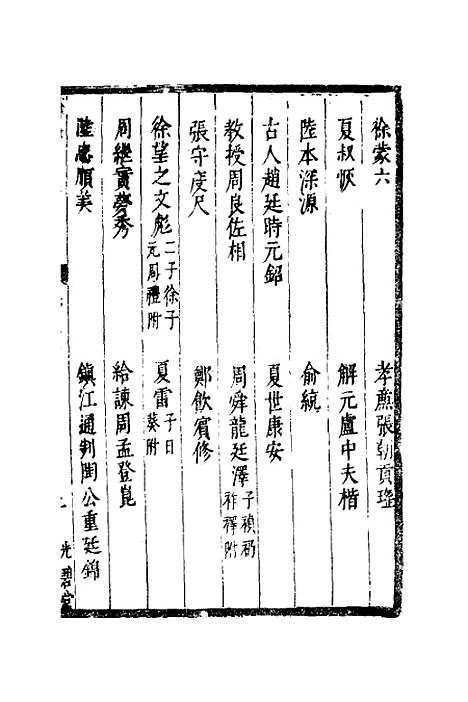 徐蒙六　孝廉張勒貢瑤
夏叔恢　解元盧中夫楷
陸本深源　俞統
古人趙廷時元銘　夏世康安
教授周良佐相　周舜龍廷澤子禎礿祚釋附
張守度尺　鄭飲賓修
徐望之文彪二子徐子元周禮附　夏雷子日葵附
周繼實夢秀　給諫周孟登崑
陸忠順美　鎮江通判閏公重廷錦
光碧堂